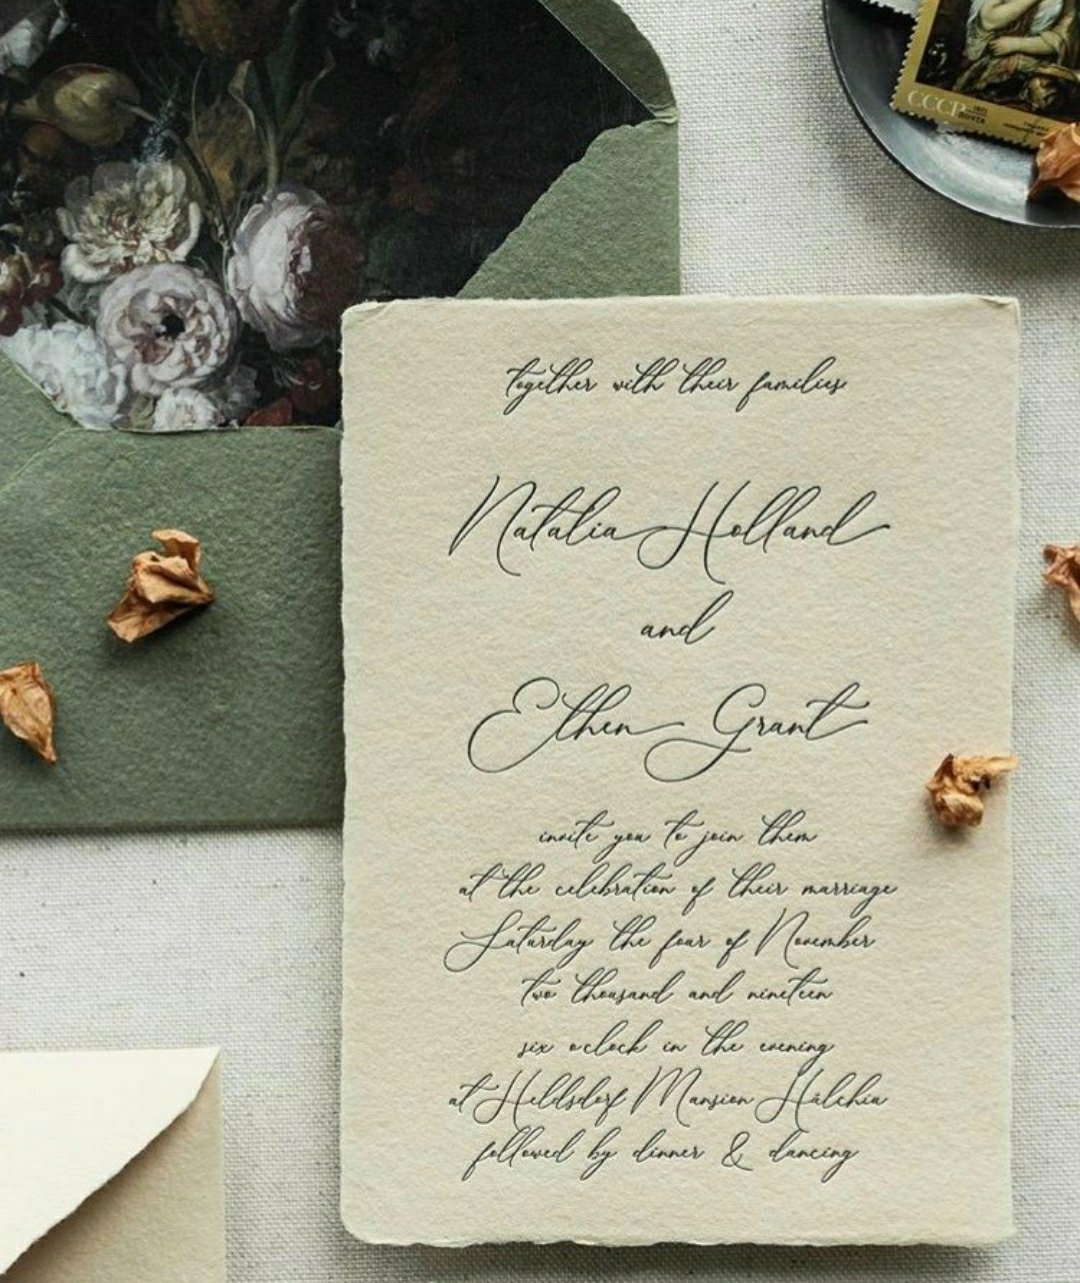 CCCP
1971
ПОЧТА
together with their families
Natalia Holland
and
Ethen Grant
invite you to join them
at the celebration of their marriage
Saturday the four of November
two thousand and nineteen
six oclock in the evening
at Heldsdorf Mansion Hălchiu
followed by dinner & dancing